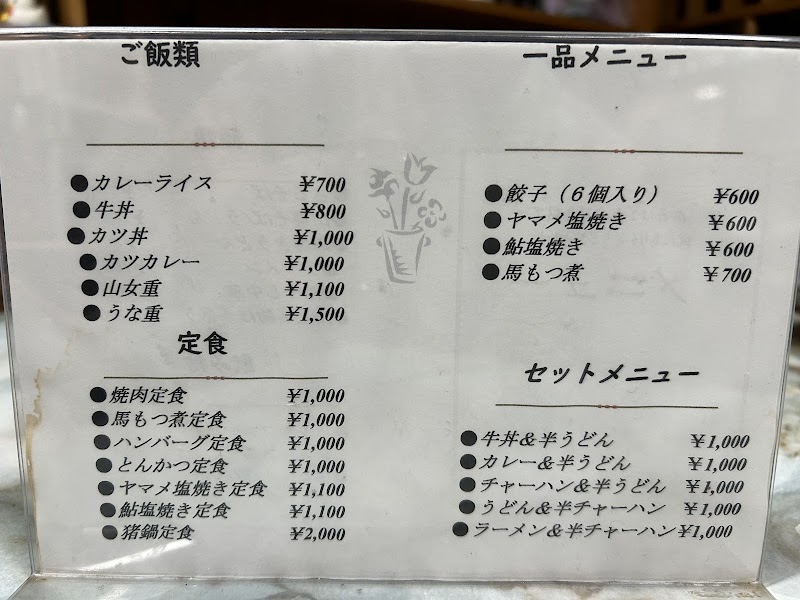 ご飯類
●カレーライス ¥700
●牛丼 ¥800
●カツ丼 ¥1,000
●カツカレー ¥1,000
●山女重 ¥1,100
●うな重 ¥1,500
定食
●焼肉定食 ¥1,000
●馬もつ煮定食 ¥1,000
●ハンバーグ定食 ¥1,000
●とんかつ定食 ¥1,000
●ヤマメ塩焼き定食 ¥1,100
●鮎塩焼き定食 ¥1,100
●猪鍋定食 ¥2,000
一品メニュー
●餃子（６個入り） ¥600
●ヤマメ塩焼き ¥600
●鮎塩焼き ¥600
●馬もつ煮 ¥700
セットメニュー
●牛丼＆半うどん ¥1,000
●カレー＆半うどん ¥1,000
●チャーハン＆半うどん ¥1,000
●うどん＆半チャーハン ¥1,000
●ラーメン＆半チャーハン¥1,000